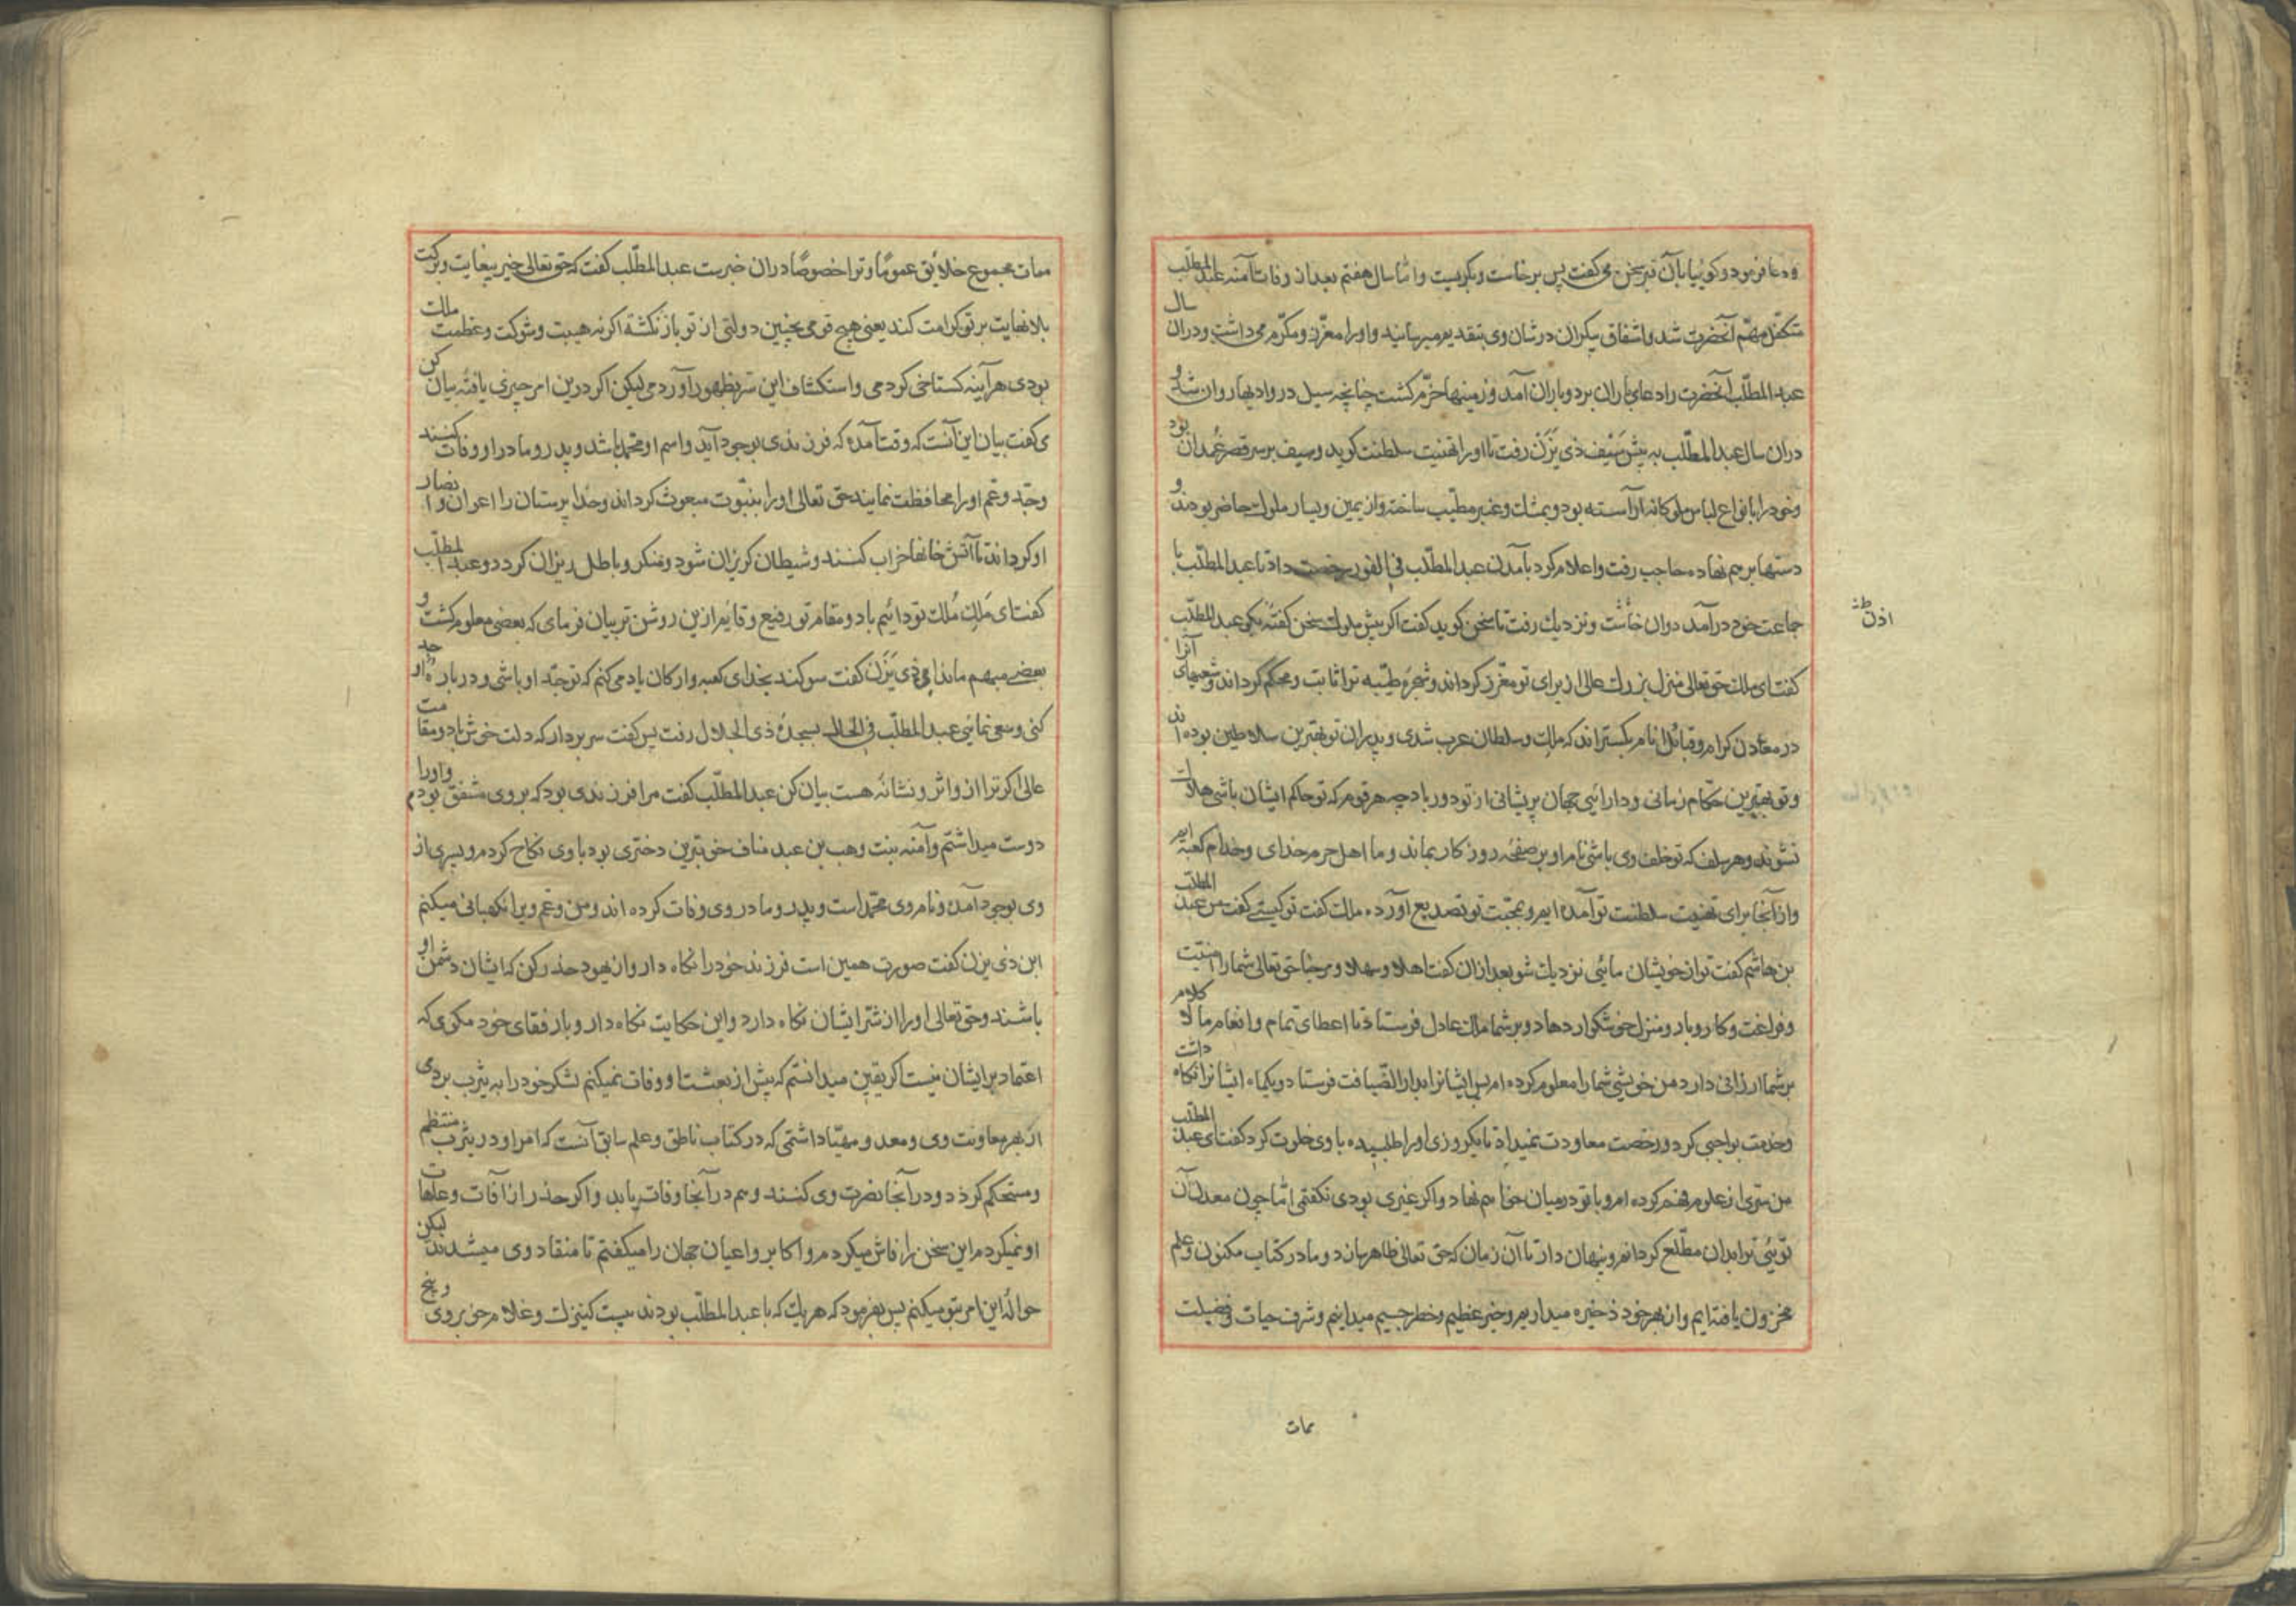 ودعا فرمود و کوئیا با آن قبر سخن می کفت پس برخاست و بکریست و امّا سال هفتم بعد از وفات آمنه عبد المطّلب
متکفّل مهمّ آنحضرت شد و اشفاق بیکران در شان وی بتقدیم میرسانید و او را معزّز و مکرّم می داشت و دران سال
عبد المطّلب آنحضرت را دعای باران برد و باران آمد و زمینها خرّم کشت چنانچه سیل در وادیها روان شد و
دران سال عبد المطّلب به پیش سَیْف ذی یَزَن رفت تا او را تهنیت سلطنت کوید و سیف بر سر قصر غُمدان بود
و خود را با نواع لباس ملوکانه آراسته بود و بمشک و عنبر مطیّب ساخته و از یمین و یسار ملوک حاضر بودند و
دستها بر هم نهاده حاجب رفت و اعلام کرد بآمدن عبد المطّلب فی الفور رخصت داد تا عبد المطّلب با
جماعت خود در آمد دوان خاست و نزدیک رفت تا سخن کوید کفت اکر پیش ملوک سخن کفتهٔ بکو عبد المطّلب
کفت ای ملک حق تعالی منزل بزرک عالی از برای تو مقرّر کرداند و شجرهٔ طیّبه ترا ثابت و محکم کرداند و شعبهای آنرا
در معادن کرام و قبائل انام بکستراند که ملک و سلطان عرب شدی و پدران تو بهترین سلاطین بوده اند
و تو بهترین حکّام زمانی و دارائی جهان پریشانی از تو دور باد چه هر قوم که تو حاکم ایشان باشی هلاک
نشوند و هر سلف که تو خلف وی باشی نام او بر صفحهٔ روزکار بماند و ما اهل حرم خدای و خدام کعبه ایم
و از آنجا برای تهنیت سلطنت تو آمده ایم و بمحبّت تو تصدیع آورده ملک کفت تو کیستی کفت من عبد المطلّب
بن هاشم کفت تو از خویشان مائی نزدیک شو بعد ازان کفت اهلا و سهلا و مرحبا حق تعالی شما را امنیّت
و فراغت و کاروبار و منزل خوشکوار دهاد و بر شما ملک عادل فرستاد تا اعطای تمام و انعام مالا کلام
بر شما ارزانی دارد من خویشی شما را معلوم کرده ام پس ایشانرا بدار الضّیافت فرستاد و یکماه ایشانرا نکاه داشت
و خدمت بواجبی کرد و رخصت معاودت نمیداد تا یکروزی او را طلبیده با وی خلوت کرد کفت ای عبد المطلّب
من سرّی از علوم فهم کرده ام و با تو در میان خواهم نهاد و اکر غیری بودی نکفتمی امّا چون معدن آن
توئی ترا بدان مطّلع کردانم و پنهان دار تا آن زمان که حق تعالی ظاهر سازد و ما در کتاب مکنون و علم
مخزون یافته ایم و از بهر خود ذخیره میداریم و خبر عظیم و خطر جسیم میدانیم و شرف حیات و فضیلت
ممات
اذن
ممات مجموع خلائق عموماً و ترا خصوصاً دران خبرست عبد المطّلب کفت که حق تعالی خیر بیغایت و برکت
بلا نهایت بر تو کرامت کند یعنی هیچ قومی بچنین دولتی از تو باز نکشته اکر نه هیبت و شوکت و عظمت ملک
بودی هر آینه کستاخی کردمی و استکشاف این سر بظهور آوردمی لیکن اکر درین امر چیزی یافتهٔ بیان کن
ی کفت بیان این آنست که وقت آمده که فرزندی بوجود آید و اسم او محمّد باشد و پدر و مادر او وفات کنند
و جدّ و عمّ او را محافظت نمایند حق تعالی او را بنبّوت مبعوث کرداند و خدا پرستان را اعوان و انصار
او کرداند تا آتش خانها خراب کنند و شیطان کریزان شود و منکر و باطل ریزان کردد و عبد المطّلب
کفت ای مَلِک مُلک تو دائیم باد و مقام تو رفیع و قایم ازین روشن تر بیان فرمای که بعضی معلوم کشت و
بعضی مبهم ماند ابن ذی یَزَن کفت سوکند بخدای کعبه و ارکان یاد می کنم که تو جدّ او باشی و در بارهٔ او جد
کنی و سعی نمائی عبد المطّلب فی الحال بسجدهٔ ذی الجلال رفت پس کفت سر بردار که دلت خوش باد و مقامت
عالی اکر ترا از و اثر و نشانهٔ هست بیان کن عبد المطّلب کفت مرا فرزندی بود که بر وی مشفق بودم و او را
دوست میداشتم و آمنه بنت وهب بن عبد مناف خوبترین دختری بود با وی نکاح کردم و پسری از
وی بوجود آمد و نام وی محمّد است و پدر و مادر وی وفات کرده اند و من و عم ویرا نکهبانی میکنم
ابن ذی یزن کفت صورت همین است فرزند خود را نکاه دار و از یهود حذر کن که ایشان دشمن او
باشند و حق تعالی او را از شرّ ایشان نکاه دارد و این حکایت نکاه دار و با رفقای خود مکوی که
اعتماد بر ایشان نیست اکر یقین میدانستم که پیش از بعثت او وفات نمیکنم لشکر خود را به یثرب بردمی
از بهر معاونت وی و معد و مهیّا داشتمی که در کتاب ناطق و علم سابق آنست که امر او در یثرب منتظم
و مستحکم کردد و در آنجا نصرت وی کنند و هم در آنجا وفات یابد و اکر حذر از آفات و علّهات
او نمیکردم این سخن را فاش میکردم و اکابر و اعیان جهان را میکفتم تا منقاد وی میشدند لیکن
حوالهٔ این امر بتو میکنم پس بفرمود که هر یک که با عبد المطّلب بودند بیست کنیزک و غلام خوبروی و پنج